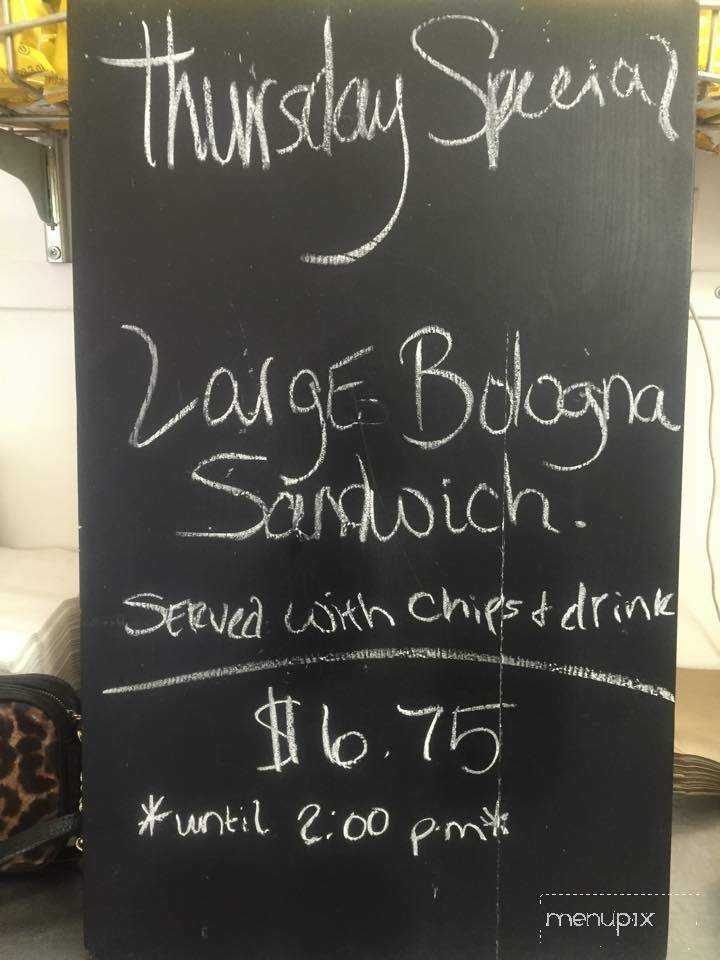 Thursday Special
LargE Bologna
Sandwich.
SERVed with chips & drink
$6.75
*until 2:00 p.m*
menupix